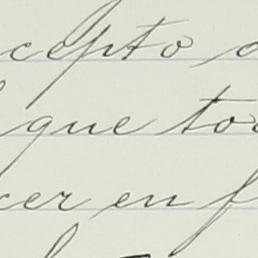 cepto
que to
cer en f